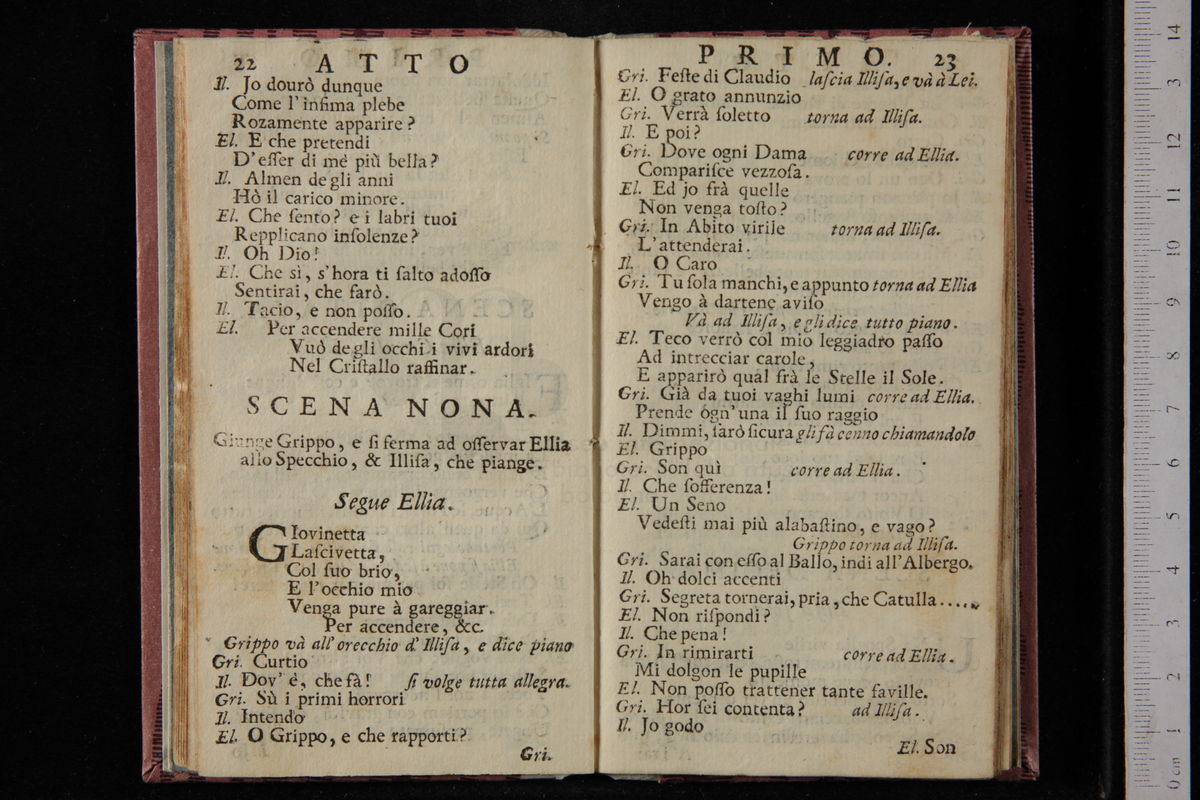 22 ATTO
Il. Jo dourò dunque
Come l'infima plebe
Rozamente apparire?
El. E che pretendi
D'eſſer di mè più bella?
Il. Almen degli anni
Hò il carico minore.
El. Che ſento? e i labri tuoi
Repplicano inſolenze?
Il. Oh Dio!
El. Che sì, s'hora ti ſalto adoſſo
Sentirai, che farò.
Il. Tacio, e non poſſo.
El. Per accendere mille Cori
Vuò degli occhi i vivi ardori
Nel Criſtallo raffinar.
SCENA NONA.
Giunge Grippo, e ſi ferma ad oſſervar Ellia
allo Specchio, & Illiſa, che piange.
Segue Ellia.
GIovinetta
Laſcivetta,
Col ſuo brio,
E l'occhio mio
Venga pure à gareggiar.
Per accendere, &c.
Grippo và all'orecchio d'Illiſa, e dice piano
Gri. Curtio
Il. Dov'è, che fà! ſi volge tutta allegra.
Gri. Sù i primi horrori
Il. Intendo
El. O Grippo, e che rapporti?
Gri.
PRIMO. 23
Gri. Feſte di Claudio laſcia Illiſa, e và à Lei.
El. O grato annunzio
Gri. Verrà ſoletto torna ad Illiſa.
Il. E poi?
Gri. Dove ogni Dama corre ad Ellia.
Compariſce vezzoſa.
El. Ed jo frà quelle
Non venga toſto?
Gri. In Abito virile torna ad Illiſa.
L'attenderai.
Il. O Caro
Gri. Tu ſola manchi, e appunto torna ad Ellia
Vengo à dartene aviſo
Và ad Illiſa, e gli dice tutto piano.
El. Teco verrò col mio leggiadro paſſo
Ad intrecciar carole,
E apparirò qual frà le Stelle il Sole.
Gri. Già da tuoi vaghi lumi corre ad Ellia.
Prende ogn'una il ſuo raggio
Il. Dimmi, ſarò ſicura gli fà cenno chiamandolo
El. Grippo
Gri. Son quì corre ad Ellia.
Il. Che ſofferenza!
El. Un Seno
Vedeſti mai più alabaſtino, e vago?
Grippo torna ad Illiſa.
Gri. Sarai con eſſo al Ballo, indi all'Albergo.
Il. Oh dolci accenti
Gri. Segreta tornerai, pria, che Catulla.....
El. Non riſpondi?
Il. Che pena!
Gri. In rimirarti corre ad Ellia.
Mi dolgon le pupille
El. Non poſſo trattener tante faville.
Gri. Hor ſei contenta? ad Illiſa.
Il. Jo godo
El. Son
0 cm 1 2 3 4 5 6 7 8 9 10 11 12 13 14